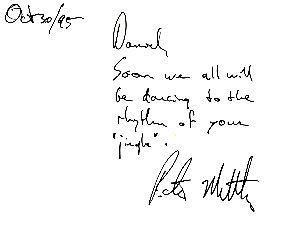 Oct 30/95
Daniel,
Soon we all will
be dancing to the
rhythm of your
"jingle".